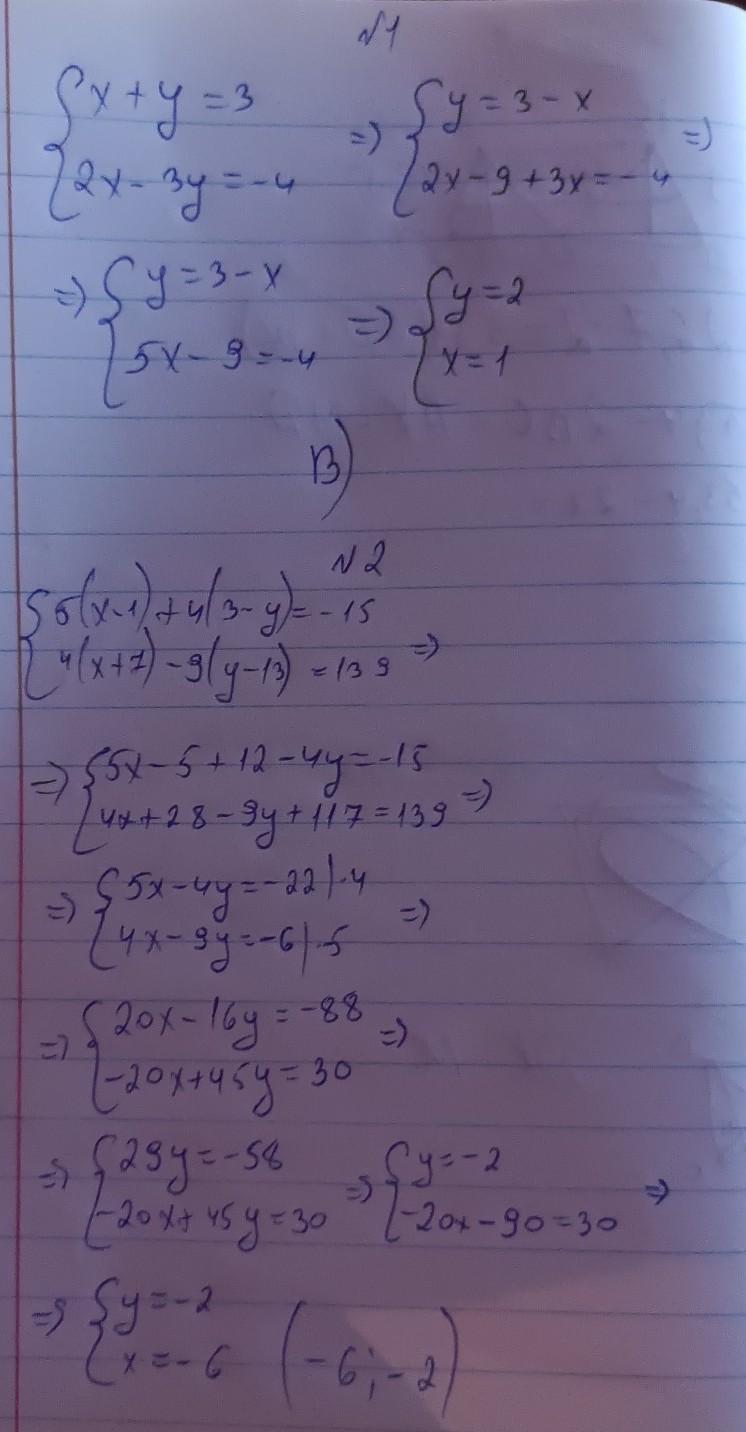 №1
{x + y = 3 => {y = 3 - x =>
{2x - 3y = -4 {2x - 9 + 3x = -4
=> {y = 3 - x => {y = 2
{5x - 9 = -4 {x = 1
B)
№2
{5(x-1) + 4(3-y) = -15
{4(x+7) - 9(y-13) = 139 =>
=> {5x - 5 + 12 - 4y = -15
{4x + 28 - 9y + 117 = 139 =>
=> {5x - 4y = -22 | ·4
{4x - 9y = -6 | ·5 =>
=> {20x - 16y = -88 =>
{-20x + 45y = 30
=> {29y = -58 => {y = -2
{-20x + 45y = 30 {-20x - 90 = 30 =>
=> {y = -2
{x = -6 (-6; -2)